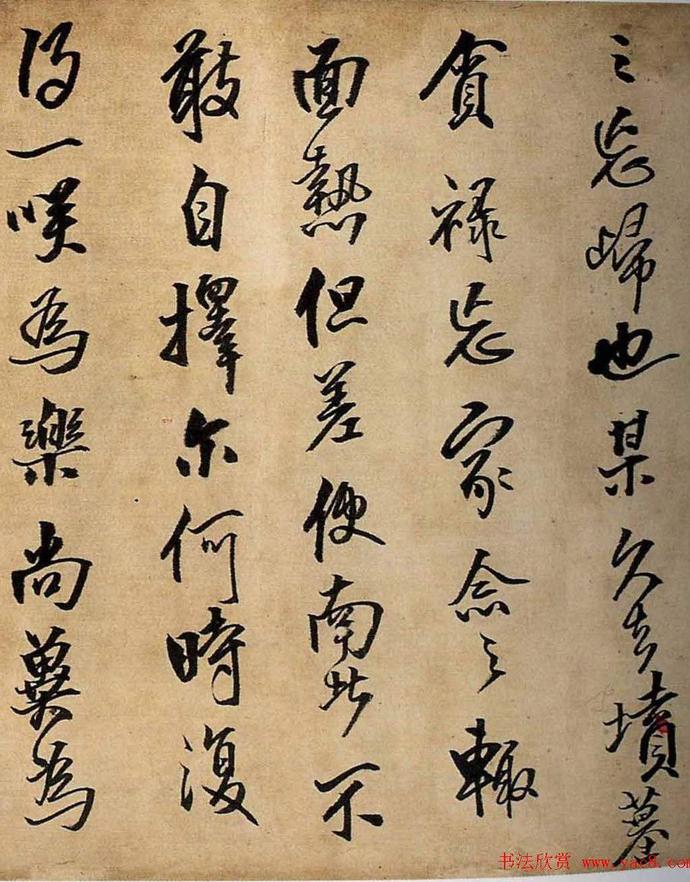 之忘歸也某久去墳墓
貪禄忘家念之輙
面熱但差使南北不
敢自擇尔何時復
得一咲為樂尚冀為
书法欣赏 www.yac8.com